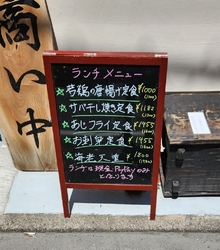 商い中
ランチメニュー
☆若鶏の唐揚げ定食 ¥1000
☆サバ干し焼き定食 ¥1182
☆あじフライ定食 ¥1455
☆お刺身定食 ¥1455
☆海老天重 ¥1800
ランチは現金、PayPayのみ
となります